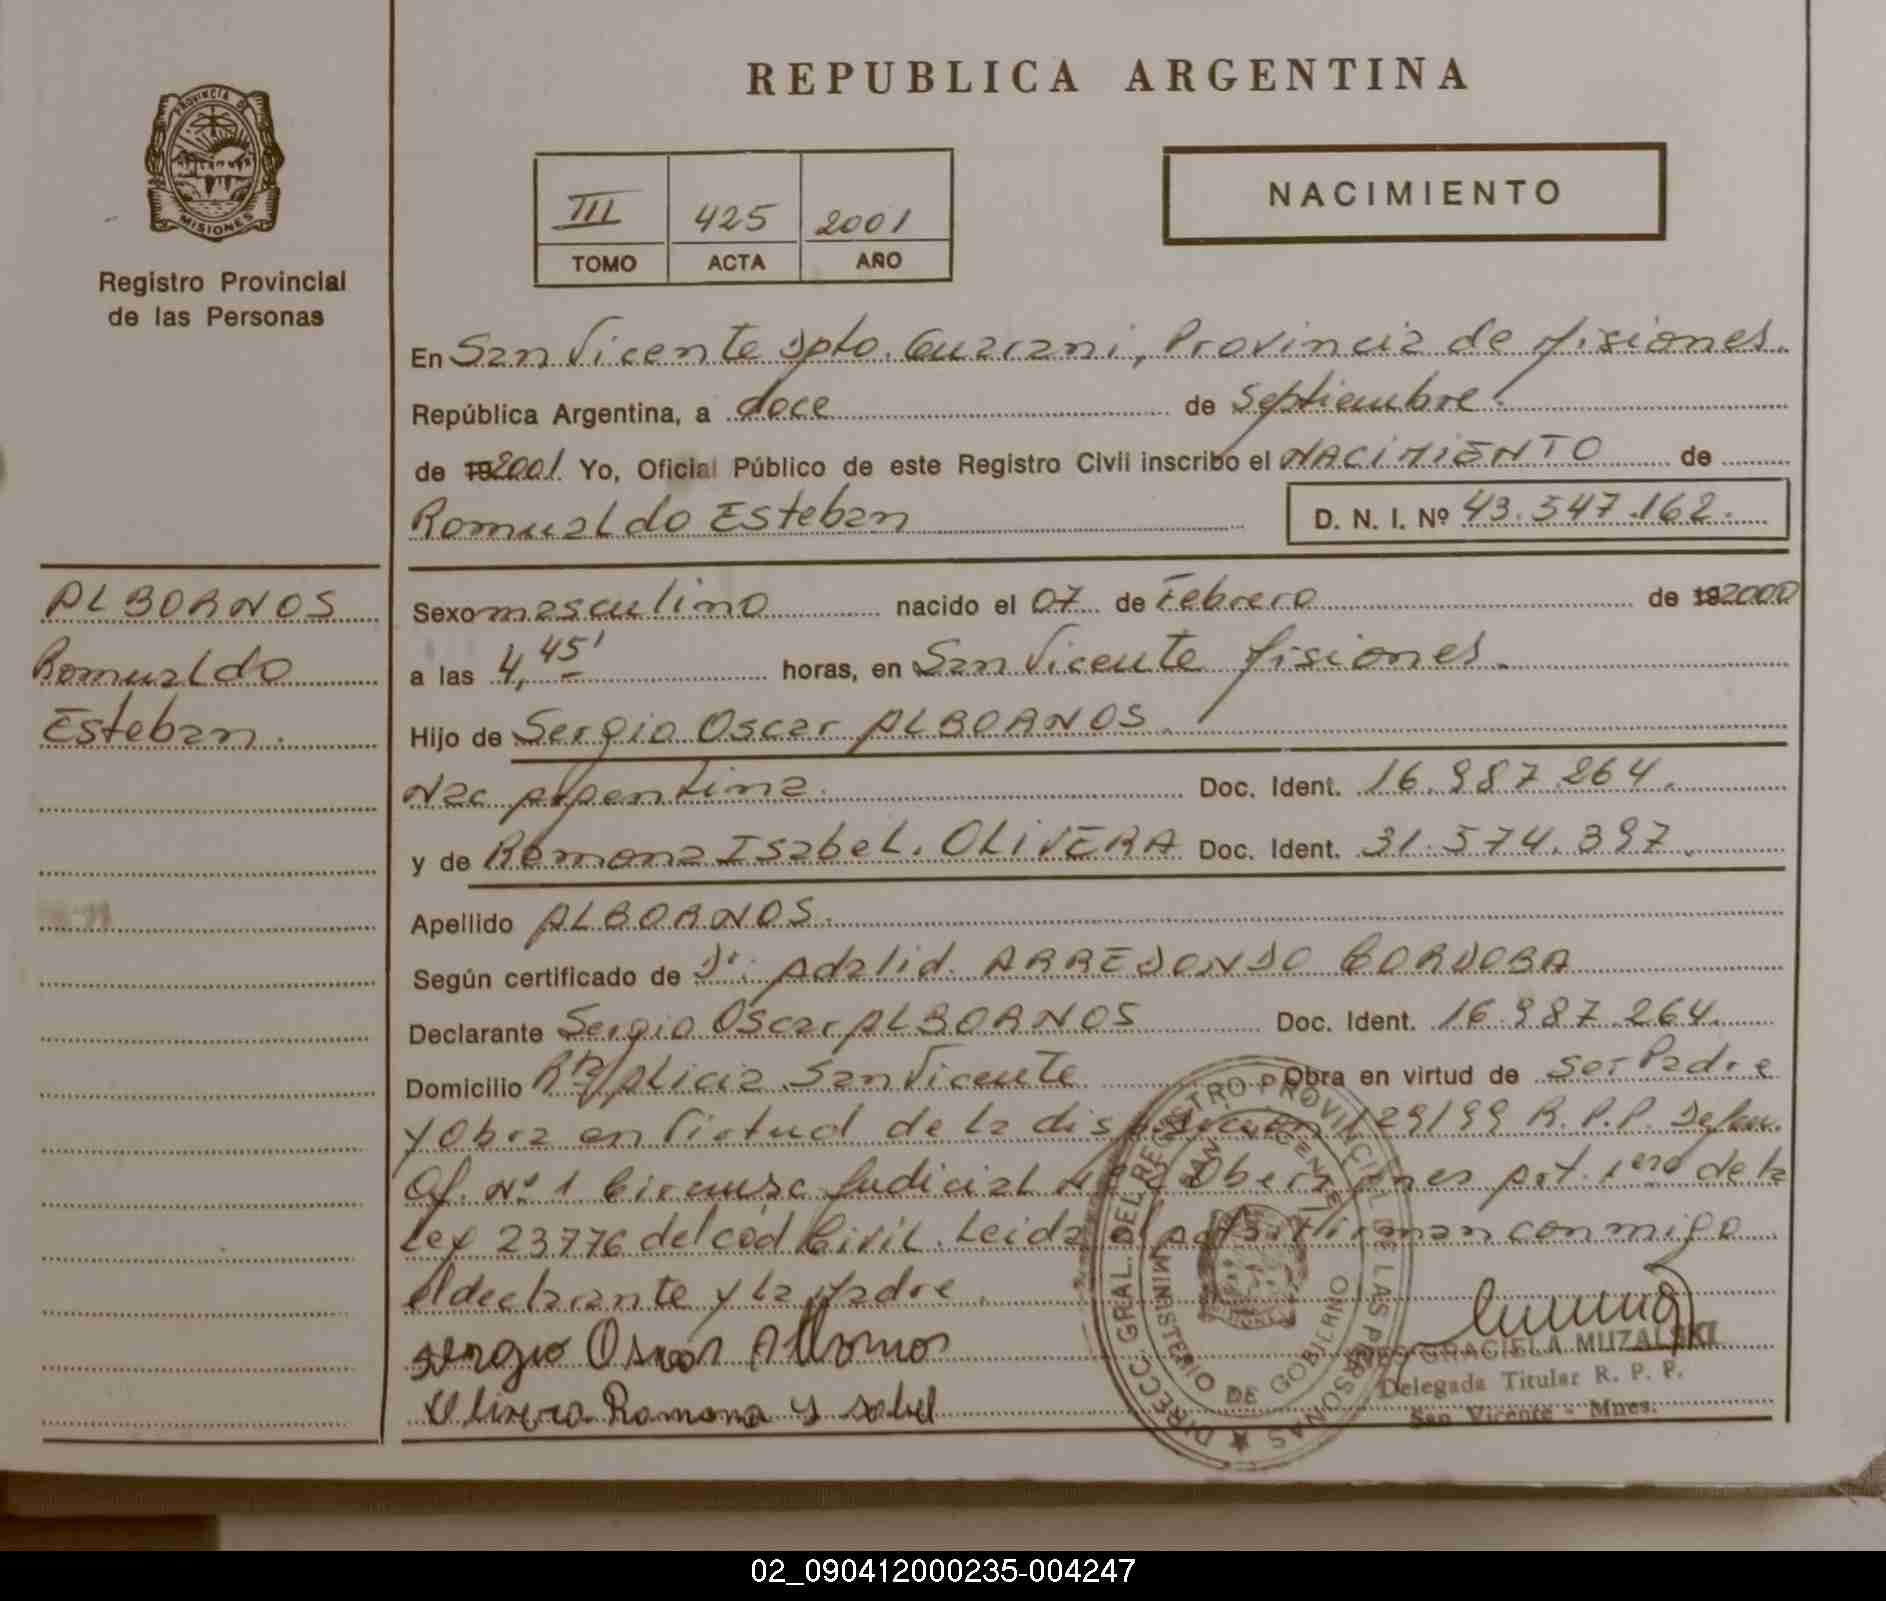 REPUBLICA ARGENTINA
PROVINCIA DE
MISIONES
Registro Provincial
de las Personas
III 425 2001
TOMO ACTA AÑO
NACIMIENTO
En San Vicente Dpto. Guarani, Provincia de Misiones.
República Argentina, a doce de Septiembre.
de 192001. Yo, Oficial Público de este Registro Civil inscribo el NACIMIENTO de
Romualdo Esteban D. N. I. Nº 43.547.162.
ALBORNOS
Romualdo
Esteban.
Sexo masculino nacido el 07 de Febrero de 192000
a las 4,45' horas, en San Vicente Misiones.
Hijo de Sergio Oscar ALBORNOS.
Nac Argentina. Doc. Ident. 16.987.264.
y de Ramona Isabel. OLIVERA Doc. Ident. 31.574.397.
Apellido ALBORNOS.
Según certificado de Dr. Adalid. ARREDONDO CORDOBA
Declarante Sergio Oscar ALBORNOS Doc. Ident. 16.987.264.
Domicilio Rta Alicia San Vicente Obra en virtud de ser Padre
y Obra en Virtud de la disposicion 129/99 R.P.P. Defen.
Of. Nº 1 Circunsc Judicial Obera Mnes Art. 1ero de la
Ley 23776 del cód Civil. Leida el acta firman conmigo
el declarante y la Madre.
Sergio Oscar Albornos
Olivera Ramona Ysabel
DIRECC. GRAL. DEL REGISTRO PROVINCIAL DE LAS PERSONAS
MINISTERIO DE GOBIERNO
SAN VICENTE
INES GRACIELA MUZALSKI
Delegada Titular R. P. P.
San Vicente - Mnes.
02_090412000235-004247